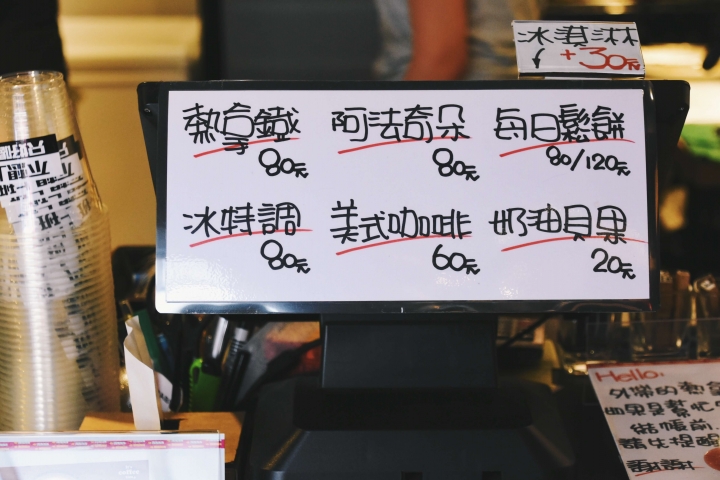 冰淇淋
+30元
熱拿鐵
80元
阿法奇朵
80元
每日鬆餅
80/120元
冰特調
80元
美式咖啡
60元
奶油貝果
20元
Hello:
外帶的
如果是幫忙
結帳前
請先提醒
謝謝